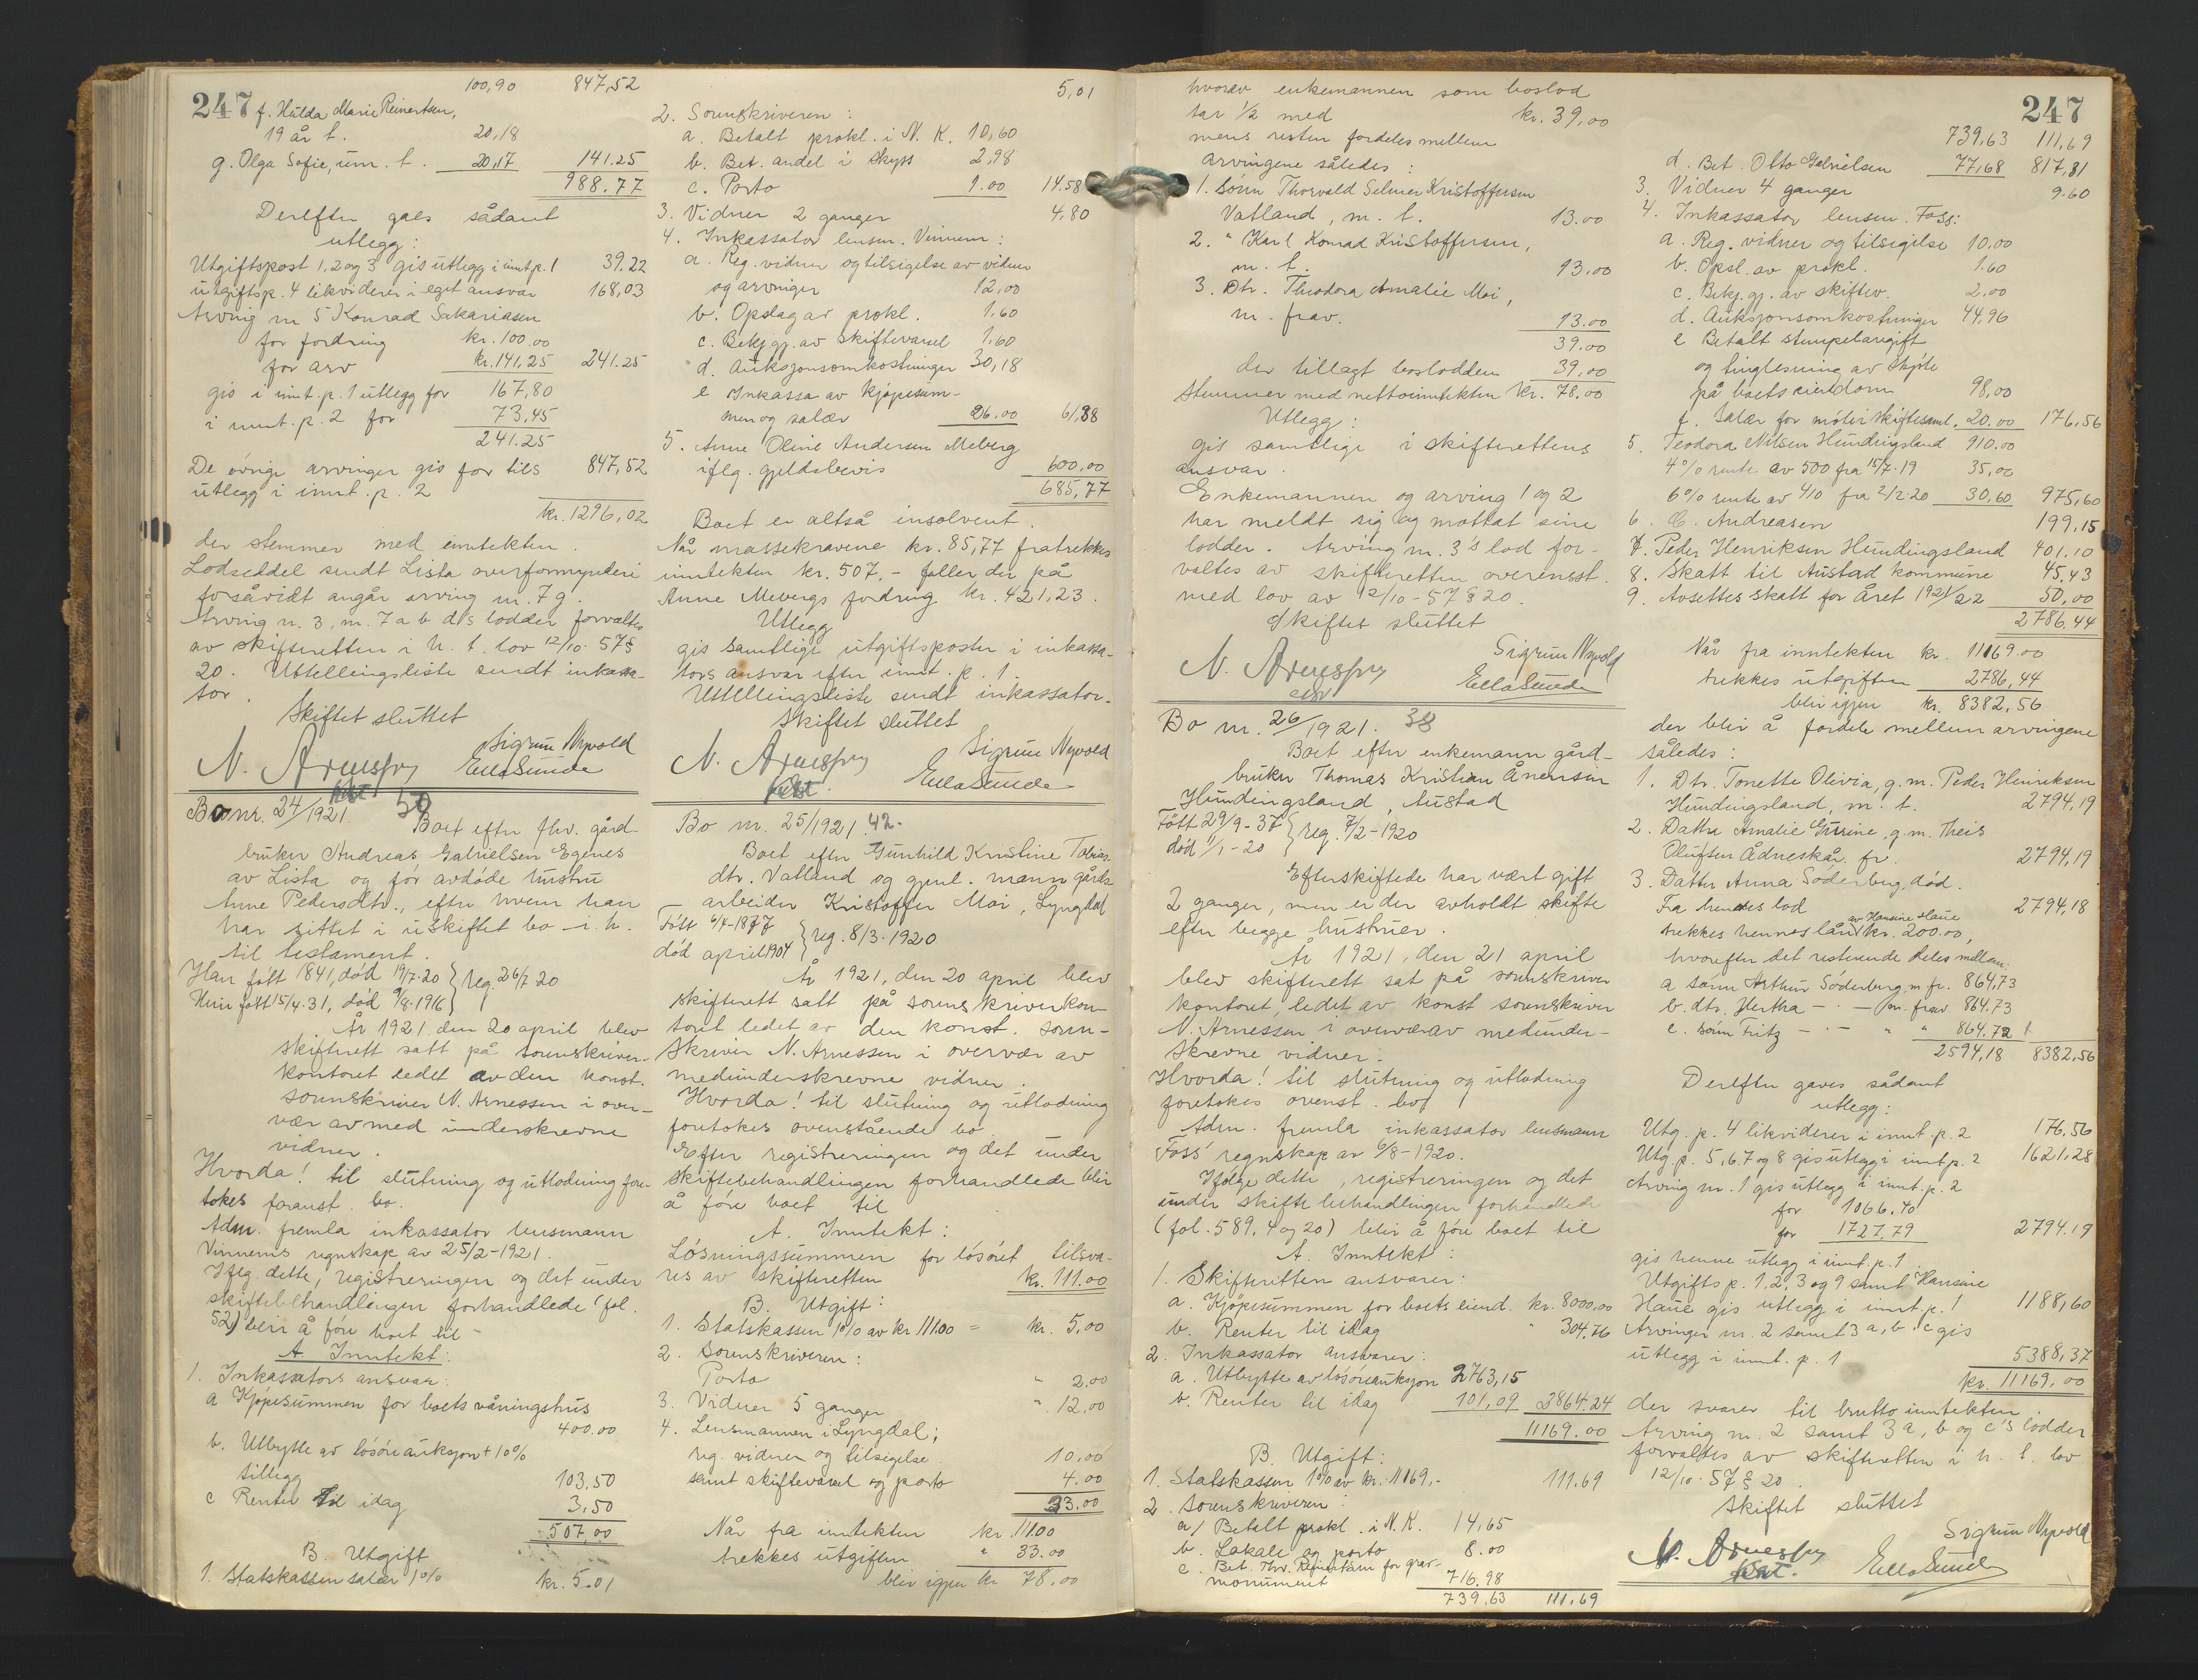 100,90 847,52
247 f. Hulda Marie Reinertsen,
19 år t. 20,18
g. Olga Sofie, um. t. 20,17 141.25
988.77
Derefter gaes sådant
utlegg:
Utgiftspost 1, 2 og 3 gis utlegg i innt. p. 1 39.22
utgiftsp. 4 likviderer i eget ansvar 168,03
Arving nr 5 Konrad Sakariasen
for fordring kr. 100.00
for arv kr. 141,25 241.25
gis i innt. p. 1 utlegg for 167,80
i innt. p. 2 for 73,45
241.25
De øvrige arvinger gis for tils 847,52
utlegg i innt. p. 2
kr. 1296,02
der stemmer med inntekten.
Lodseddel sendt Lista overformynderi
forsåvidt angår arving nr. 7 g.
Arving n. 3, nr. 7 a b d's lodder forvaltes
av skifteretten i h. t. lov 12/10 57 §
20. Utstellingsliste sendt inkassa-
tor.
Skiftet sluttet
N. Arnessen Sigrun Nyvold
kst. Ella Sunde
Bo nr. 24/1921. 50
Boet efter fhv. gård-
bruker Andreas Gabrielsen Egenes
av Lista og før avdøde hustru
Anne Pedersdtr., efter hvem han
har sittet i uskiftet bo i h.
til testament.
Han født 1841, død 19/7-20 } reg. 26/7 20
Hun født 15/4.31, død 9/8-1916 }
År 1921 den 20 april blev
skifterett satt på sorenskriver-
kontoret ledet av den konst.
sorenskriver N. Arnessen i over-
vær av med underskrevne
vidner.
Hvorda! til slutning og utlodning fore-
tokes foranst. bo.
Adm. fremla inkassator lensmann
Vinnems regnskap av 25/2-1921.
Iflg. dette, registreringen og det under
skiftebehandlingen forhandlede (fol.
52) blir å føre boet til
A. Inntekt:
1. Inkassators ansvar:
a Kjøpesummen for boets våningshus
400.00
b. Utbytte av løsøreauksjon + 10%
tillegg 103,50
c Renter til idag 3,50
507,00
B. Utgift
1. Statskassen salær 1% kr. 5.01
5,01
2. Sorenskriveren:
a. Betalt prokl. i N. K. 10,60
b. Bet. andel i skyss 2,98
c. Porto 1.00 14.58
3. Vidner 2 ganger 4.80
4. Inkassator lensm. Vinnem:
a. Reg. vidner og tilsigelse av vidner
og arvinger 12,00
b. Opslag av prokl. 1.60
c. Bekj. gj. av skiftevarsel 1.60
d. Auksjonsomkostninger 30,18
e Inkassa av kjøpesum-
men og salær 26.00 61,38
5. Anne Oline Andersen Meberg
iflg. gjeldsbevis 600,00
685,77
Boet er altså insolvent.
Når massekravene kr. 85,77 fratrekkes
inntekten kr. 507,- faller der på
Anne Mebergs fordring kr. 421,23.
Utlegg
gis samtlige utgiftsposter i inkassa-
tors ansvar efter innt. p. 1.
Utstellingsliste sendt inkassator.
Skiftet sluttet
N. Arnessen Sigrun Nyvold
kst. Ella Sunde
Bo nr. 25/1921. 42.
Boet efter Gunhild Kristine Tobias-
dtr. Vatland og gjenl. mann gårds-
arbeider Kristoffer Moi, Lyngdal
Født 6/4-1877 } reg. 8/3.1920
død april 1904 }
År 1921, den 20 april blev
skifterett satt på sorenskriverkon-
toret ledet av den konst. soren-
skriver N. Arnessen i overvær av
medunderskrevne vidner.
Hvorda! til slutning og utlodning
foretokes ovenstående bo
Efter registreringen og det under
skiftebehandlingen forhandlede blir
å føre boet til
A. Inntekt:
Løsningssummen for løsøret tilsva-
res av skifteretten kr. 111.00
B. Utgift:
1. Statskassen 1% av kr. 111.00 = kr. 5,00
2. Sorenskriveren:
Porto " 2,00
3. Vidner 5 ganger " 12,00
4. Lensmannen i Lyngdal;
reg. vidner og tilsigelse. 10,00
samt skiftevarsel og porto 4.00
33.00
Når fra inntekten kr. 111.00
trekkes utgiften " 33.00
blir igjen kr 78.00
hvorav enkemannen som boslod
tar 1/2 med kr. 39,00
mens resten fordeles mellem
arvingene således:
1. Sønn Thorvald Selmer Kristoffersen
Vatland, m. t. 13.00
2. " Karl Konrad Kristoffersen,
m. t. 13.00
3. Dtr. Theodora Amalie Moi,
m. frav. 13.00
39.00
der tillagt boslodden 39.00
stemmer med nettoinntekten kr. 78.00
Utlegg:
gis samtlige i skifterettens
ansvar.
Enkemannen og arving 1 og 2
har meldt sig og mottat sine
lodder. Arving nr. 3's lod for-
valtes av skifteretten overensst.
med lov av 12/10-57 § 20.
Skiftet sluttet
N. Arnessen Sigrun Nyvold
kst Ella Sunde
Bo nr. 26/1921. 38
Boet efter enkemann gård-
bruker Thomas Kristian Ånensen
Hundingsland, Austad
Født 29/9-37 } reg. 7/2-1920
død 1/1-20 }
Efterskiftede har vært gift
2 ganger, men er der avholdt skifte
efter begge hustruer.
År 1921, den 21 april
blev skifterett sat på sorenskriver
kontoret, ledet av konst sorenskriver
N. Arnessen i overvær av medunder-
skrevne vidner.
Hvorda! til slutning og utlodning
foretokes ovenst. bo
Adm. fremla inkassator lensmann
Foss' regnskap av 6/8-1920.
Ifølge dette, registreringen og det
under skiftebehandlingen forhandlede
(fol. 589, 4 og 20) blir å føre boet til
A. Inntekt:
1. Skifteretten ansvarer:
a. Kjøpesummen for boets eiend. kr. 8000,00
b. Renter til idag " 304.76
2. Inkassator ansvarer:
a. Utbytte av løsøreauksjon 2763,15
b. Renter til idag 101,09 2864.24
11169.00
B. Utgift:
1. Statskassen 1% av kr. 11169,- 111.69
2. Sorenskriveren:
a/ Betalt prokl. i N. K. 14,65
b. Lokale og porto 8.00
c. Bet. Thv. Reinertsen for grav-
monument 716.98
739.63 111,69
247
739,63 111,69
d. Bet. Otto Gabrielsen 77,68 817,31
3. Vidner 4 ganger 9.60
4. Inkassator lensm. Foss:
a. Reg. vidner og tilsigelse 10,00
b. Opsl. av prokl. 1.60
c. Bekj. gj. av skiftev. 2.00
d. Auksjonsomkostninger 44,96
e Betalt stempelavgift
og tinglesning av skjøte
på boets eiendom 98,00
f. Salær for møte i skiftesaml. 20.00 176,56
5. Teodora Nilsen Hundingsland 910.00
4% rente av 500 fra 15/7.19 35,00
6% rente av 410 fra 2/2-20 30,60 975,60
6. C. Andreasen 199,15
7. Peder Henriksen Hundingsland 401.10
8. Skatt til Austad kommune 45,43
9. Avsettes skatt for Året 1921/22 50,00
2786.44
Når fra inntekten kr. 11169.00
trekkes utgiften 2786,44
blir igjen kr. 8382,56
der blir å fordele mellem arvingene
således:
1. Dtr. Tonette Olivia, g. m. Peder Henriksen
Hundingsland, m. t. 2794,19
2. Datter Amalie Gurine, g. m. Theis
Olufsen Ådneskår. fr. 2794,19
3. Datter Anna Søderberg, død.
Fra hendes lod 2794,18
trekkes hennes lån av Hansine Haue kr. 200.00,
hvorefter det resterende deles mellem:
a sønn Arthur Søderberg, m. fr. 864,73
b. dtr. Hertha - . - m. frav 864.73
c. sønn Fritz - . - " " 864.72
2594,18 8382,56
Derefter gaves sådant
utlegg:
Utg. p. 4 likviderer i innt. p. 2 176,56
Utg. p. 5, 6, 7 og 8 gis utlegg i innt p. 2 1621,28
Arving nr. 1 gis utlegg i innt. p. 2
for 1066.40
for 1727,79 2794.19
gis henne utlegg i innt. p. 1
Utgifts p. 1, 2, 3 og 9 samt Hansine
Haue gis utlegg i innt. p. 1 1188,60
Arvinger nr. 2 samt 3 a, b, c gis
utlegg i innt. p. 1 5388,37
kr. 11169.00
der svarer til bruttoinntekten
Arving nr. 2 samt 3 a, b og c's lodder
forvaltes av skifteretten i h. t. lov
12/10-57 § 20.
Skiftet sluttet
N. Arnessen Sigrun Nyvold
kst. Ella Sunde